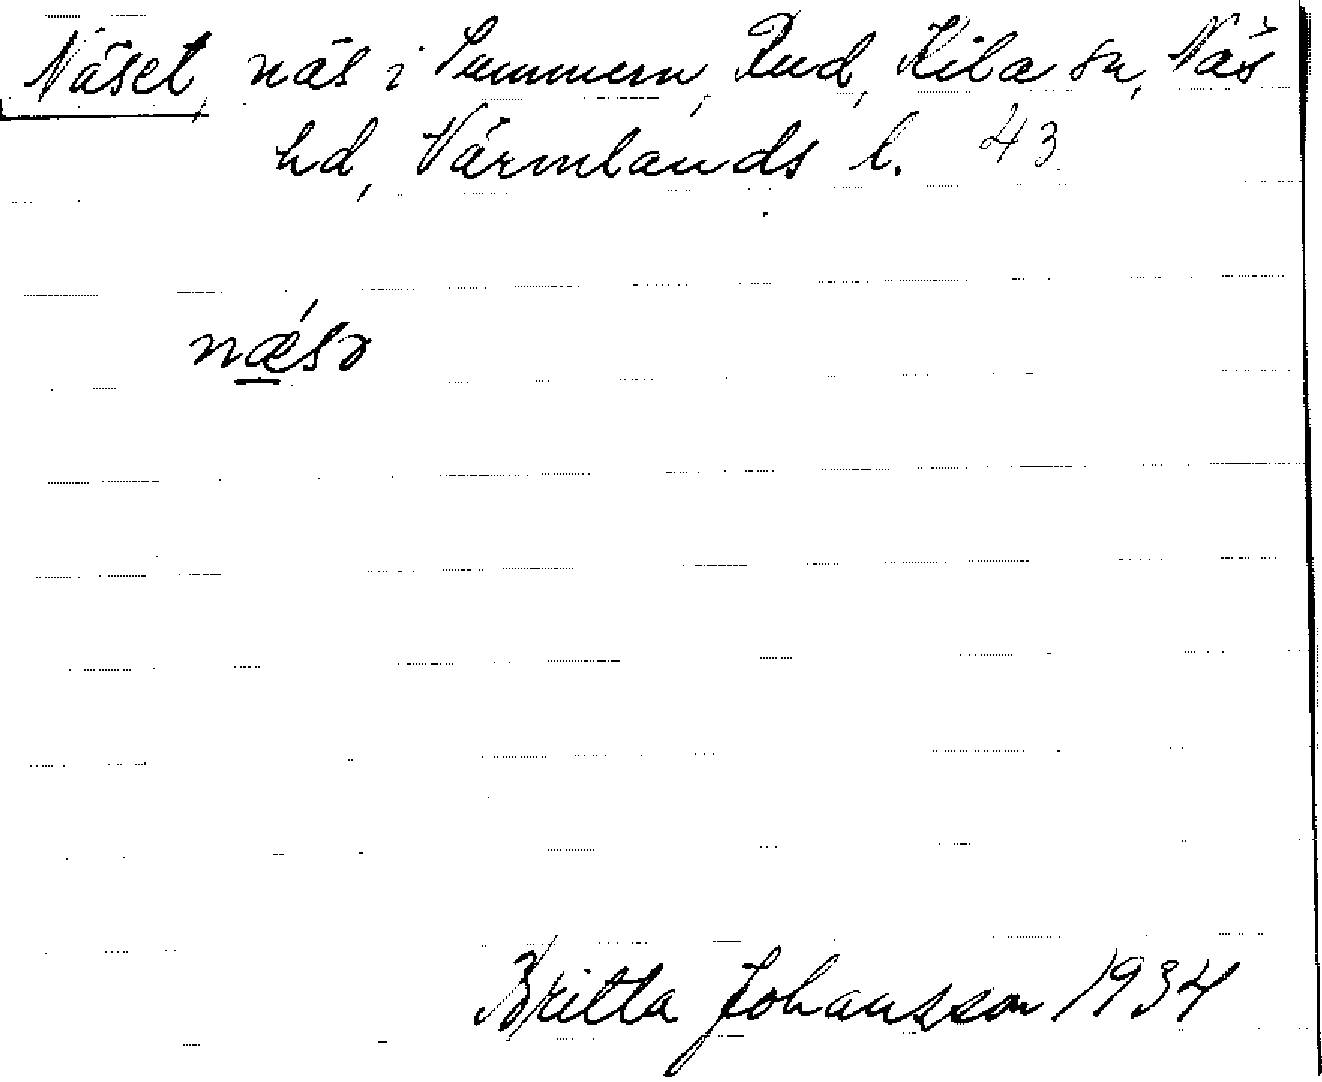 Näset, näs i Summern, Rud, Kila sn, Näs
hd, Värmlands l. 43
nǽ̲sə
Britta Johansson 1934